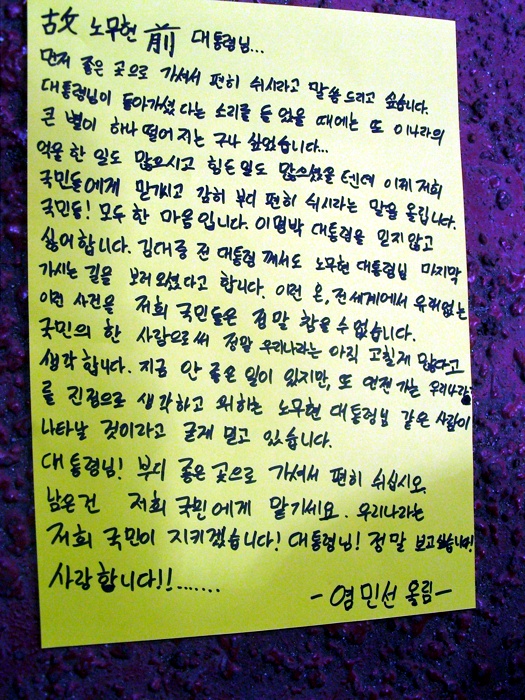 古攵 노무현 前 대통령님...
먼저 좋은 곳으로 가셔서 편히 쉬시라고 말씀 드리고 싶습니다.
대통령님이 돌아가셨다는 소리를 들었을 때에는 또 이나라의
큰 별이 하나 떨어지는 구나 싶었습니다...
억울한 일도 많으시고 힘든일도 많으셨을 텐데 이제 저희
국민들에게 맡기시고 감히 부디 편히 쉬시라는 말을 올립니다.
국민들! 모두 한 마음입니다. 이명박 대통령을 믿지않고
싫어합니다. 김대중 전 대통령 께서도 노무현 대통령님 마지막
가시는 길을 보러 오셨다고 합니다. 이런 온, 전세계에서 유래없는
이런 사건을 저희 국민들은 정말 참을 수 없습니다.
국민의 한 사람으로써 정말 우리나라는 아직 고칠게 많다고
생각합니다. 지금 안 좋은 일이 있지만, 또 언젠가는 우리나라
를 진정으로 생각하고 위하는 노무현 대통령님 같은 사람이
나타날 것이라고 굳게 믿고 있습니다.
대통령님! 부디 좋은곳으로 가셔서 편히 쉬십시오.
남은건 저희 국민에게 맡기세요. 우리나라는
저희 국민이 지키겠습니다! 대통령님! 정말 보고싶습니다!
사랑합니다!!.......
-염민선 올림-